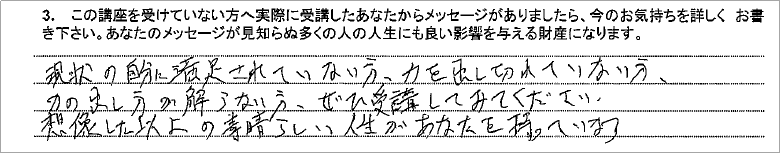 3. この講座を受けていない方へ実際に受講したあなたからメッセージがありましたら、今のお気持ちを詳しく お書
き下さい。あなたのメッセージが見知らぬ多くの人の人生にも良い影響を与える財産になります。
現状の自分に満足されていない方、力を出し切れていない方、
力の出し方が解らない方、ぜひ受講してみてください。
想像した以上の素晴らしい人生があなたを待っています